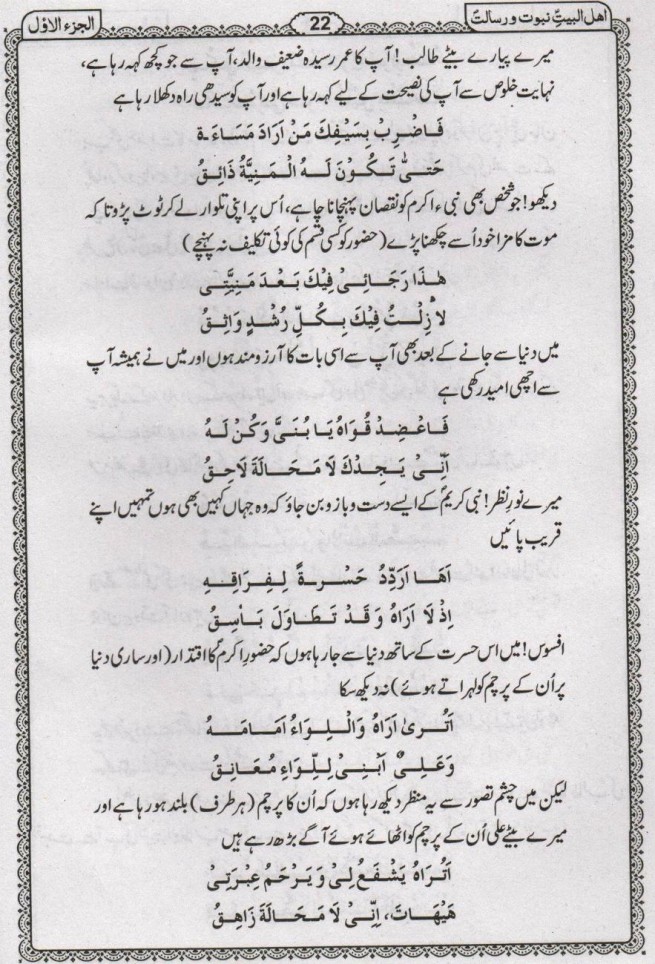 اھل البیتِ نبوت و رسالت
22
الجزء الاوّل
میرے پیارے بیٹے طالب! آپ کا عمر رسیدہ ضعیف والد، آپ سے جو کچھ کہہ رہا ہے،
نہایت خلوص سے آپ کی نصیحت کے لیے کہہ رہا ہے اور آپ کو سیدھی راہ دکھلا رہا ہے
فَاضْرِبْ بِسَيْفِكَ مَنْ اَرَادَ مَسَاءَةً
حَتّٰى تَكُوْنَ لَهُ الْمَنِيَّةُ ذَائِقُ
دیکھو! جو شخص بھی نبیٔ اکرم کو نقصان پہنچانا چاہے، اُس پر اپنی تلوار لے کر ٹوٹ پڑو تا کہ
موت کا مزا خود اُسے چکھنا پڑے (حضور کو کسی قسم کی کوئی تکلیف نہ پہنچے)
هٰذَا رَجَائِىْ فِيْكَ بَعْدَ مَنِيَّتِى
لَا زِلْتُ فِيْكَ بِكُلِّ رُشْدٍ وَاثِقُ
میں دنیا سے جانے کے بعد بھی آپ سے اسی بات کا آرزو مند ہوں اور میں نے ہمیشہ آپ
سے اچھی امید رکھی ہے
فَاعْضِدْ قُوَاهُ يَا بُنَىَّ وَكُنْ لَهُ
اَنِّىْ يَجِدْكَ لَا مَحَالَةَ لَاحِقُ
میرے نورِ نظر! نبی کریمؐ کے ایسے دست و بازو بن جاؤ کہ وہ جہاں کہیں بھی ہوں تمہیں اپنے
قریب پائیں
اَهَا اَرَدِّدُ حَسْرَةً لِفِرَاقِهِ
اِذْ لَا اَرَاهُ وَقَدْ تَطَاوَلَ بَاْسِقُ
افسوس! میں اس حسرت کے ساتھ دنیا سے جا رہا ہوں کہ حضورِ اکرمؐ کا اقتدار (اور ساری دنیا
پر اُن کے پرچم کو لہراتے ہوئے) نہ دیکھ سکا
اَتُرىٰ اَرَاهُ وَالْلِوَاءُ اَمَامَهُ
وَعَلِىٌّ اَبْنِىْ لِلِّوَاءِ مَعَانِقُ
لیکن میں چشمِ تصور سے یہ منظر دیکھ رہا ہوں کہ اُن کا پرچم (ہر طرف) بلند ہو رہا ہے اور
میرے بیٹے علی اُن کے پرچم کو اٹھائے ہوئے آگے بڑھ رہے ہیں
اَتُرَاهُ يَشْفَعُ لِىْ وَيَرْحَمُ عِبْرَتِى
هَيْهَاتَ، اِنِّىْ لَا مَحَالَةَ زَاهِقُ